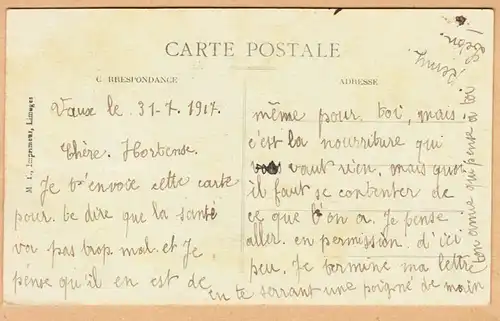 CARTE POSTALE
C RRESPONDANCE
ADRESSE
Imprimeur, Limoges
Vaux le 31-7. 1917.
Chère. Hortense.
Je t'envoie cette carte
pour te dire que la santé
va pas trop mal. et Je
pense qu'il en est de
même pour toi, mais.
c'est la nourriture qui
vaut rien. mais quoi
il faut se contenter de
ce que l'on a. Je pense
aller en permission d'ici
peu. Je termine ma lettre
en te serrant une poigné de main
ton amie qui pense a toi